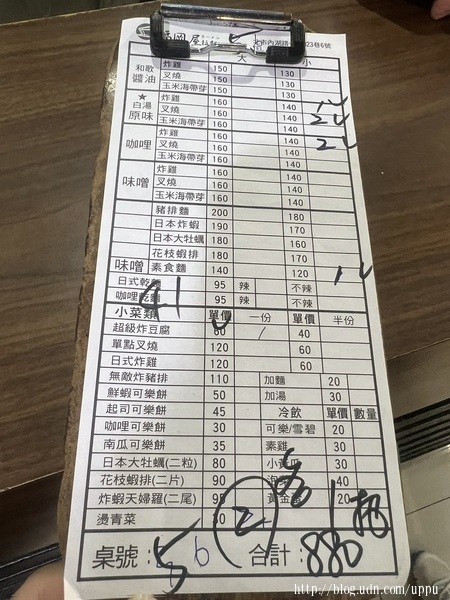 大 小
和歌 醬油 炸雞 150 130
叉燒 150 130
玉米海帶芽 150 130
★ 白湯 原味 炸雞 160 140
叉燒 160 140
玉米海帶芽 160 140
咖哩 炸雞 160 140
叉燒 160 140
玉米海帶芽 160 140
味噌 炸雞 160 140
叉燒 160 140
玉米海帶芽 160 140
豬排麵 200 180
日本炸蝦 190 170
日本大牡蠣 180 160
花枝蝦排 180 170
味噌 素食麵 140 120
日式乾麵 95 辣 不辣
咖哩乾麵 95 辣 不辣
小菜類 單價 一份 單價 半份
超級炸豆腐 80 / 40
單點叉燒 120 60
日式炸雞 120 60
無敵炸豬排 110 加麵 20
鮮蝦可樂餅 50 加湯 30
起司可樂餅 45 冷飲 單價 數量
咖哩可樂餅 30 可樂/雪碧 20
南瓜可樂餅 35 素雞 30
日本大牡蠣(二粒) 80 30
花枝蝦排(二片) 90 40
炸蝦天婦羅(二尾) 95 20
燙青菜
② 
桌號: 6 合計: 880
http://blog.udn.com/uppu